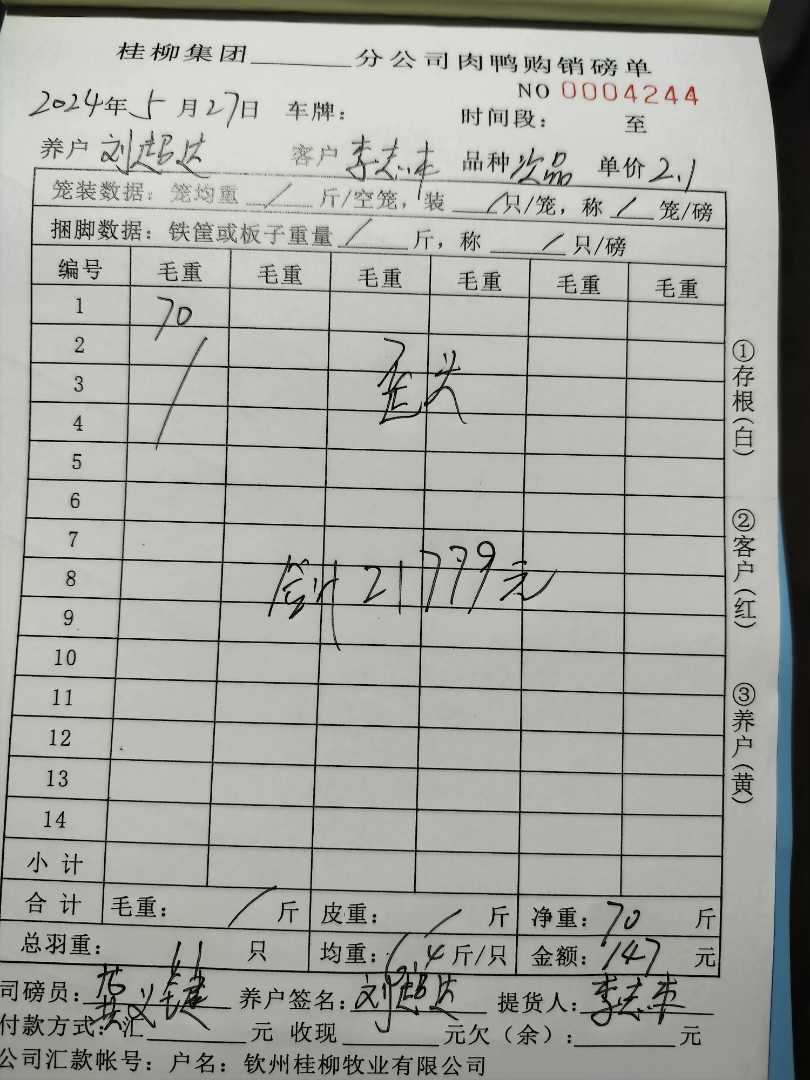 桂柳集团______分公司肉鸭购销磅单
NO 0004244
2024年5月27日 车牌: 时间段: 至
养户 刘超达 客户 李志 品种 次品 单价 2.1
笼装数据: 笼均重 / 斤/空笼, 装 / 只/笼, 称 / 笼/磅
捆脚数据: 铁筐或板子重量 / 斤, 称 / 只/磅
编号 毛重 毛重 毛重 毛重 毛重 毛重
1 70
2
3 歪头
4
5
6
7
8 合计 21779元
9
10
11
12
13
14
小计
合计 毛重: / 斤 皮重: / 斤 净重: 70 斤
总羽重: 11 只 均重: 6.4 斤/只 金额: 147 元
司磅员: 养户签名: 刘超达 提货人: 李志
付款方式: 汇______元 收现______元欠(余):______元
公司汇款帐号: 户名: 钦州桂柳牧业有限公司
①存根(白)
②客户(红)
③养户(黄)